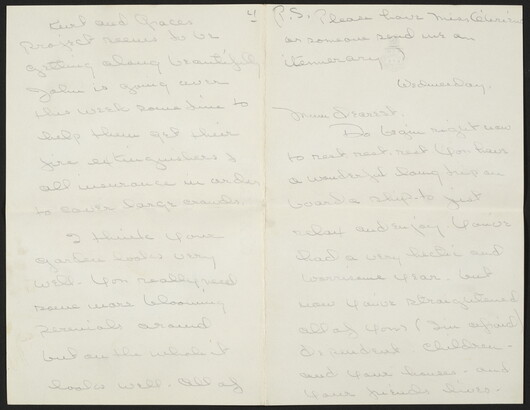 P.S. Please have Miss
or someone send us an
itinerary
Wednesday,
Mum dearest,
Do begin right now
to rest rest. rest You have
a wonderful long trip on
board a ship - to just
relax and enjoy. You've
had a very hectic and
worrisome year. but
now you've straightened
all of your (I'm afraid)
dependent children -
and your house - and
your friends lives.
4
Kurt and Graces
project seems to be
getting along beautifully
John is going over
this week sometime to
help them get their
fire extinguishers &
all insurance in order
to cover large crowds.
I think your
garden looks very
well - You really need
some more blooming
perenials around
but on the whole it
looks well. All of